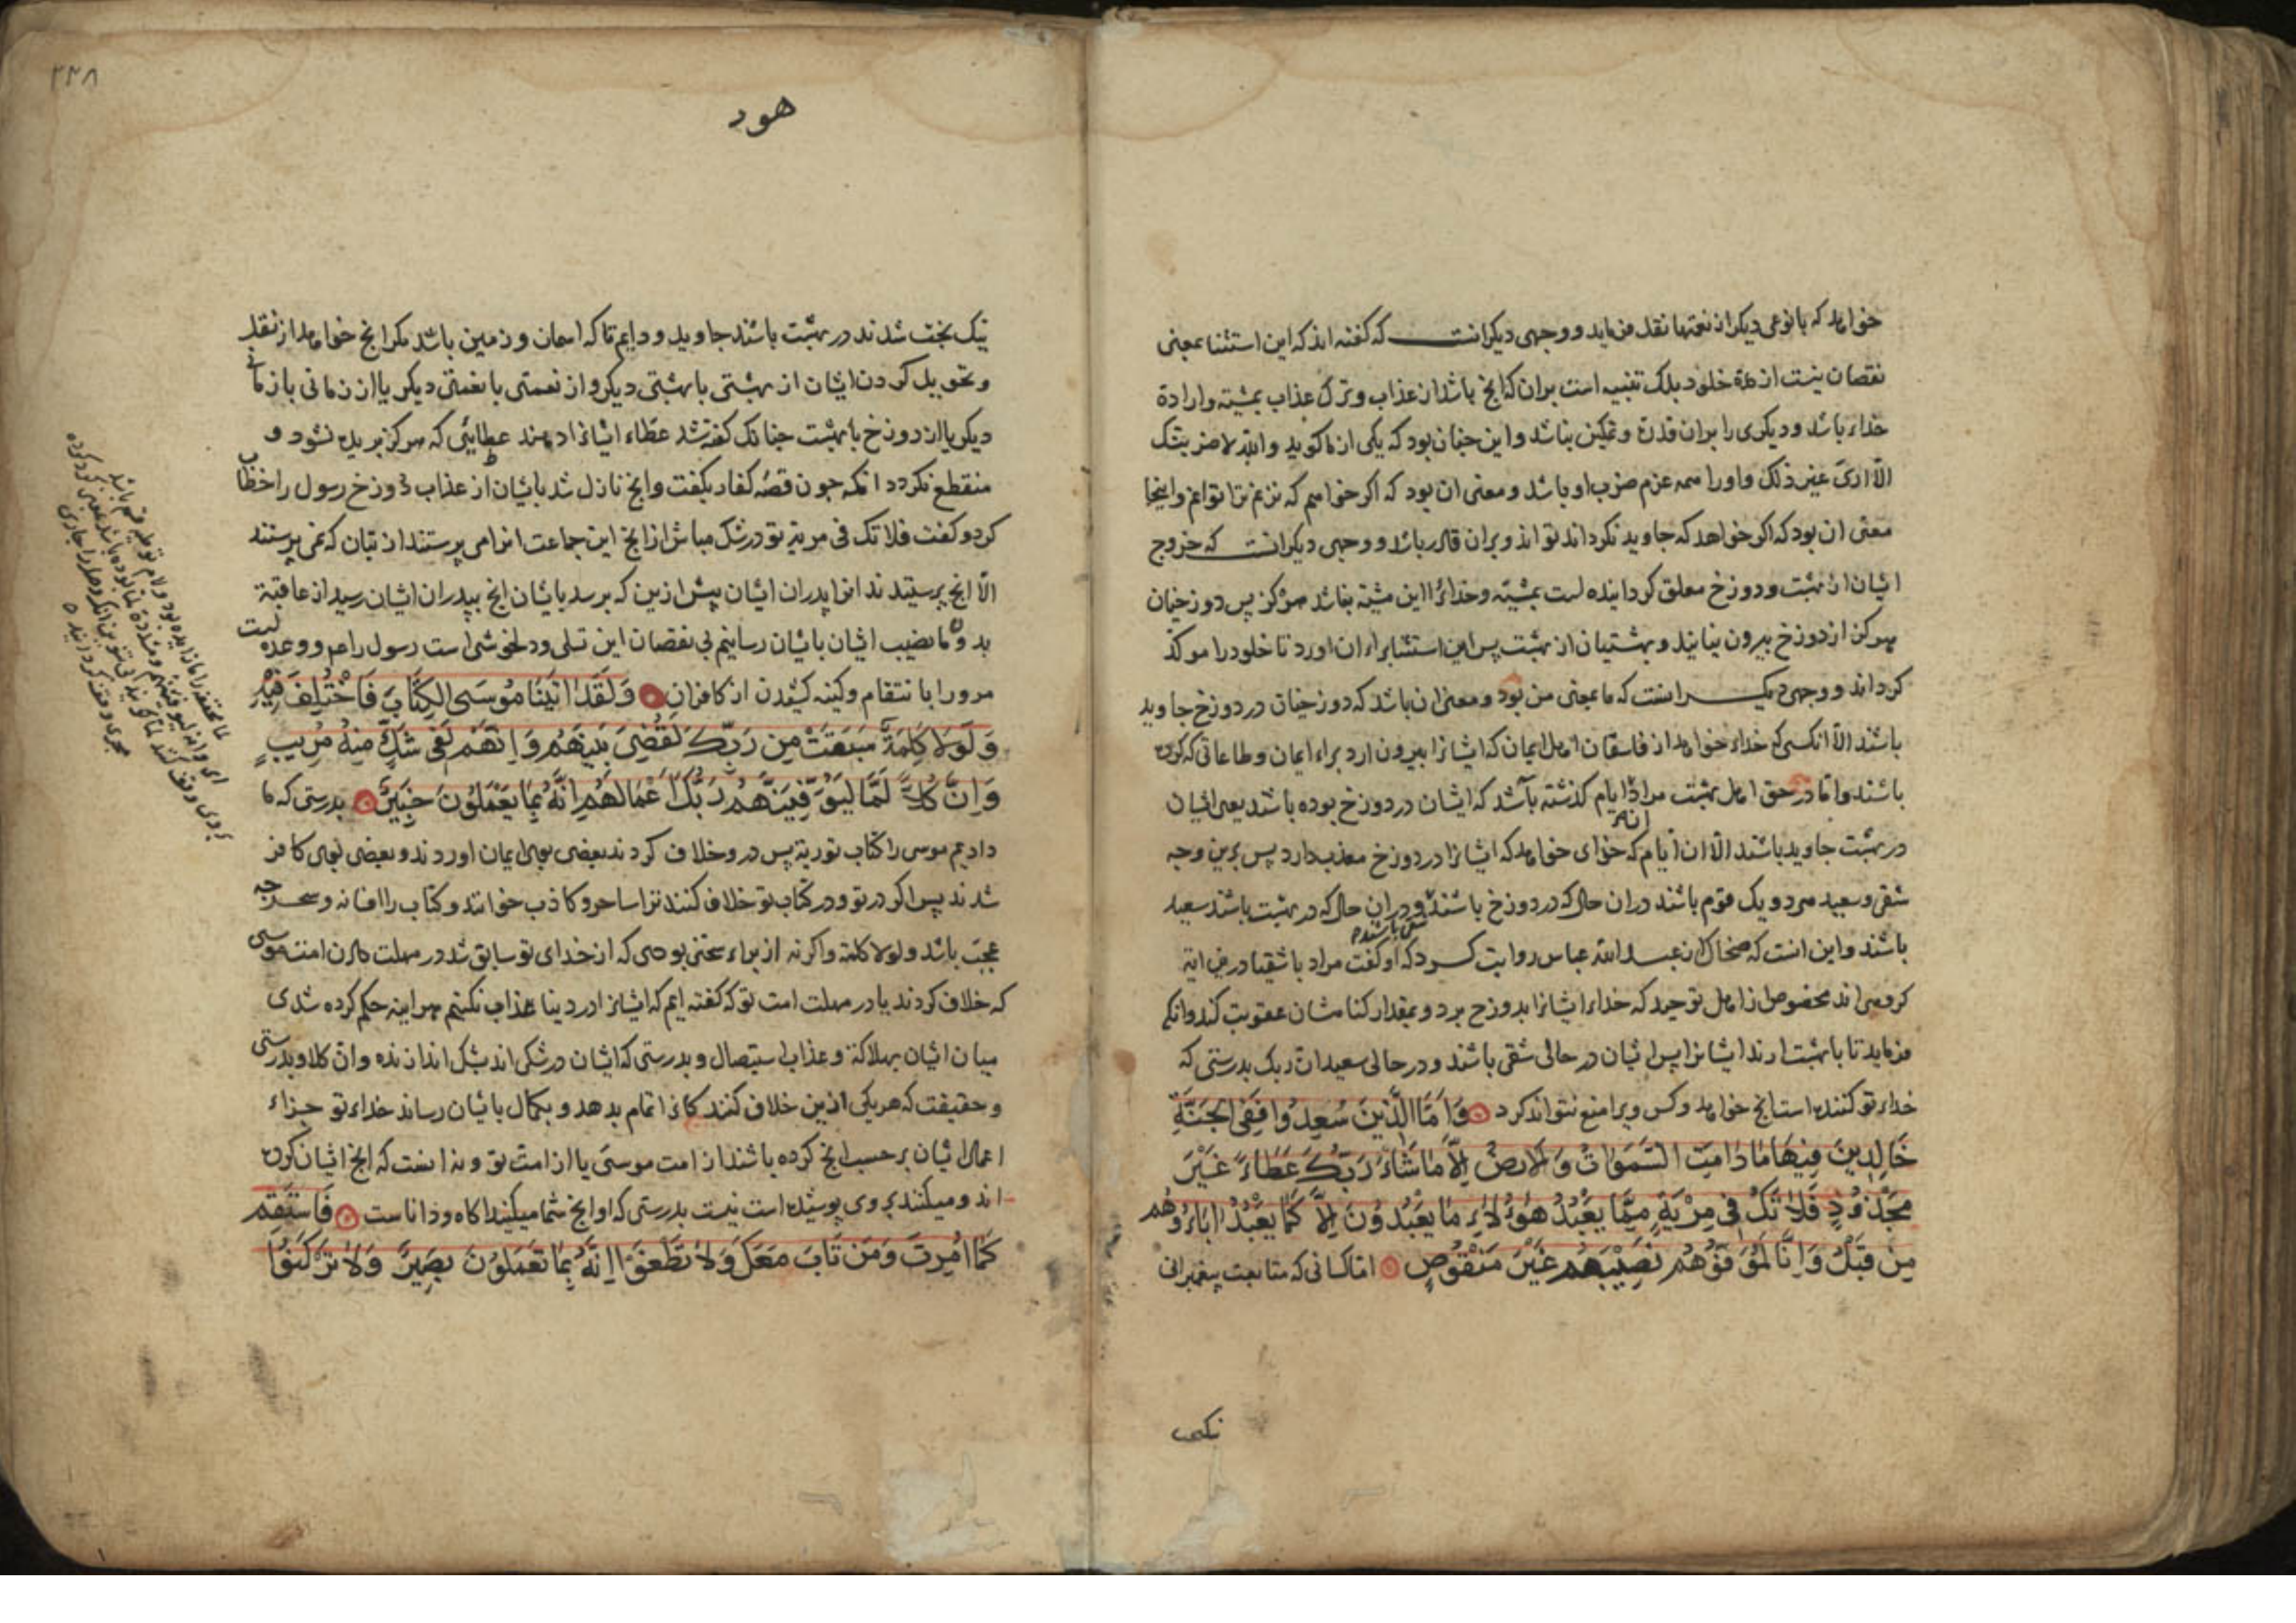 خواهد که بانوعی دیکر از نعتها نقل فرماید و وجهی دیکر انست که کفته اند که این استثنا بمعنی
نقصان نیست از مدة خلود بلک تنبیه است بران که انج باشد از عذاب وترک عذاب بمشیته وارادة
خداء باشد و دیکری را بران قدرة وتمکین نباشد واین جنان بود که یکی از ما کوید والله لاضربنک
الا اری غیر ذلک واورا همه عزم ضرب او باشد ومعنی ان بود که اکر خواهم که نزنم ترا توانم واینجا
معنی ان بود که اکر خواهد که جاوید نکرداند تواند وبران قادر باشد و وجهی دیکر انست که خروج
ایشان از بهشت ودوزخ معلق کردانیده است بمشیته وخداء را این مشیته نباشد هرکز پس دوزخیان
هرکز از دوزخ بیرون نیایند وبهشتیان از بهشت پس این استثنا براء ان اورد تا خلود را موکد
کرداند و وجهی دیکر انست که ما بمعنی من بود ومعنی ان باشد که دوزخیان در دوزخ جاوید
باشند الا انکسی که خداء خواهد از فاسقان اهل ایمان که ایشانرا بیرون ارد براء ایمان وطاعاتی که کرده
باشند واما در حق اهل بهشت مراد ایام کذشته باشد که ایشان در دوزخ بوده باشند یعنی ایشان
در بهشت جاوید باشند الا ان ایام که خدای خواهد که ایشانرا در دوزخ معذب دارد پس برین وجه
شقی وسعید هر دو یک قوم باشند دران حال که در دوزخ باشند ودران حال که در بهشت باشند سعید
شقی باشند
باشند واین انست که ضحاک از عبد الله عباس روایت کرد که او کفت مراد باشقیا درین ایة
کروهی اند مخصوص از اهل توحید که خداء ایشانرا بدوزخ برد وبمقدار کناهشان عقوبت کند وانکه
فرماید تا با بهشت ارند ایشانرا پس ایشان در حالی شقی باشند ودر حالی سعید ان ربک بدرستی که
خداء تو کننده است انج خواهد وکس ویرا منع نتواند کرد وَاَمَّا الَّذِينَ سُعِدُوا فَفِی الجَنَّةِ
خَالِدِينَ فِيهَا مَا دَامَتِ السَّمَوَاتُ وَالاَرضُ اِلاَّ مَا شَاءَ رَبُّكَ عَطَاءً غَيْرَ
مَجْذُوذٍ فَلاَ تَكُ فِی مِرْيَةٍ مِمَّا يَعْبُدُ هَؤُلاَءِ مَا يَعْبُدُونَ اِلاَّ كَمَا يَعْبُدُ ابَاؤُهُم
مِن قَبْلُ وَاِنَّا لَمُوَفُّوهُم نَصِيْبَهُم غَيْرَ مَنْقُوصٍ اما کسانی که متابعت پیغمبرانی
نیک
۲۳۸
هود
نیک بخت شدند در بهشت باشند جاوید ودایم تا که اسمان وزمین باشد مکر انج خواهد از نقل
وتحویل کردن ایشان از بهشتی با بهشتی دیکر واز نعمتی با نعمتی دیکر یا از زمانی با زمانی
دیکر یا از دوزخ با بهشت جنانک کفته شد عطاء ایشانرا دهند عطایئی که هرکز بریده نشود و
منقطع نکردد انکه جون قصه کفار بکفت وانج نازل شد بایشان از عذاب دوزخ رسول را خطاب
کرد وکفت فلا تک فی مریة تو در شک مباش از انج این جماعت انرا می پرستند از بتان که نمی پرستند
الا انج پرستیدند انرا پدران ایشان پیش ازین که برسد بایشان انج بپدران ایشان رسید از عاقبة
بد وما نصیب ایشان بایشان رسانیم بی نقصان این تسلی ودلخوشی است رسول را عم ووعده است
مرورا با نتقام وکینه کشیدن از کافران وَلَقَد اتَيْنَا مُوسَی الكِتَابَ فَاخْتُلِفَ فِيْهِ
وَلَوْلاَ كَلِمَةٌ سَبَقَتْ مِن رَبِّكَ لَقُضِیَ بَيْنَهُم وَاِنَّهُم لَفِی شَكٍّ مِنهُ مُرِيبٍ
وَاِنَّ كُلاًّ لَمَّا لَيُوَفِّيَنَّهُم رَبُّكَ اَعْمَالَهُم اِنَّهُ بِمَا يَعْمَلُونَ خَبِيرٌ بدرستی که ما
دادیم موسی را کتاب توریة پس درو خلاف کردند بعضی بوی ایمان اوردند وبعضی بوی کافر
شدند پس اکر در تو ودر کتاب تو خلاف کنند ترا ساحر وکاذب خوانند وکتاب را افسانه وسحر جه
عجب باشد ولولا کلمة واکر نه از براء سخنی بودی که از خدای تو سابق شد در مهلت دادن امت موسی
که خلاف کردند یا در مهلت امت تو که کفته ایم که ایشانرا در دنیا عذاب نکنیم هراینه حکم کرده شدی
میان ایشان بهلاکة وعذاب استیصال وبدرستی که ایشان در شکی اند بشک اندازنده وان کلا وبدرستی
وحقیقت که هریکی ازین خلاف کنندکانرا تمام بدهد وبکمال بایشان رساند خداء تو جزاء
اعمال ایشان بر حسب انج کرده باشند از امت موسی یا از امت تو وبدانست که انج ایشان کرده
اند ومیکنند بروی پوشیده است نیست بدرستی که او انج شما میکنید اکاه ودانا است فَاسْتَقِم
كَمَا اُمِرتَ وَمَن تَابَ مَعَكَ وَلاَ تَطْغَوْا اِنَّهُ بِمَا تَعْمَلُونَ بَصِيرٌ وَلاَ تَرْكَنُوا